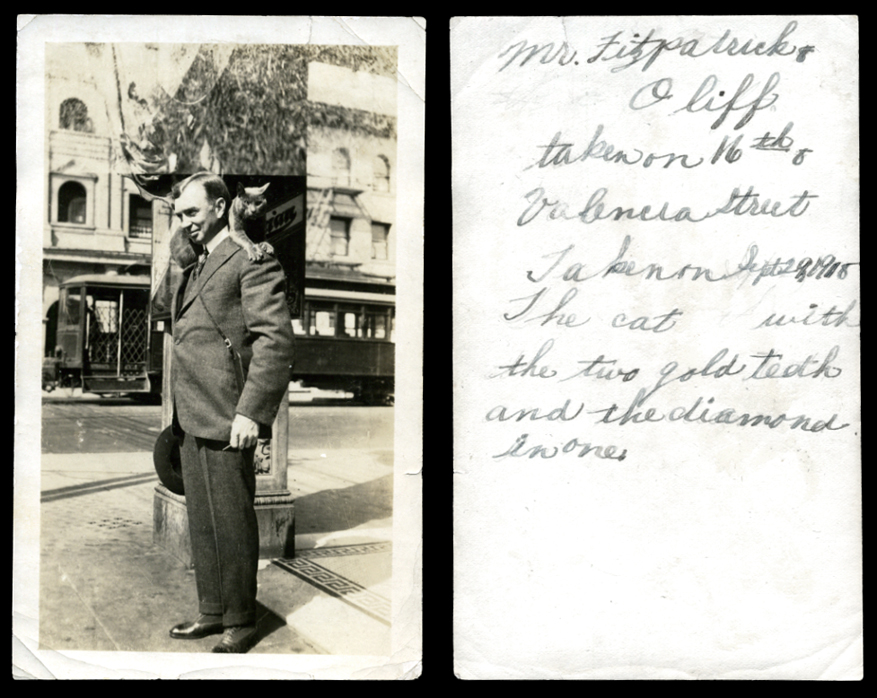 Mr. Fitzpatrick &
Oliff
taken on 16th &
Valencia Street
Taken on Sept 29,
The cat with
the two gold teeth
and the diamond
in one.